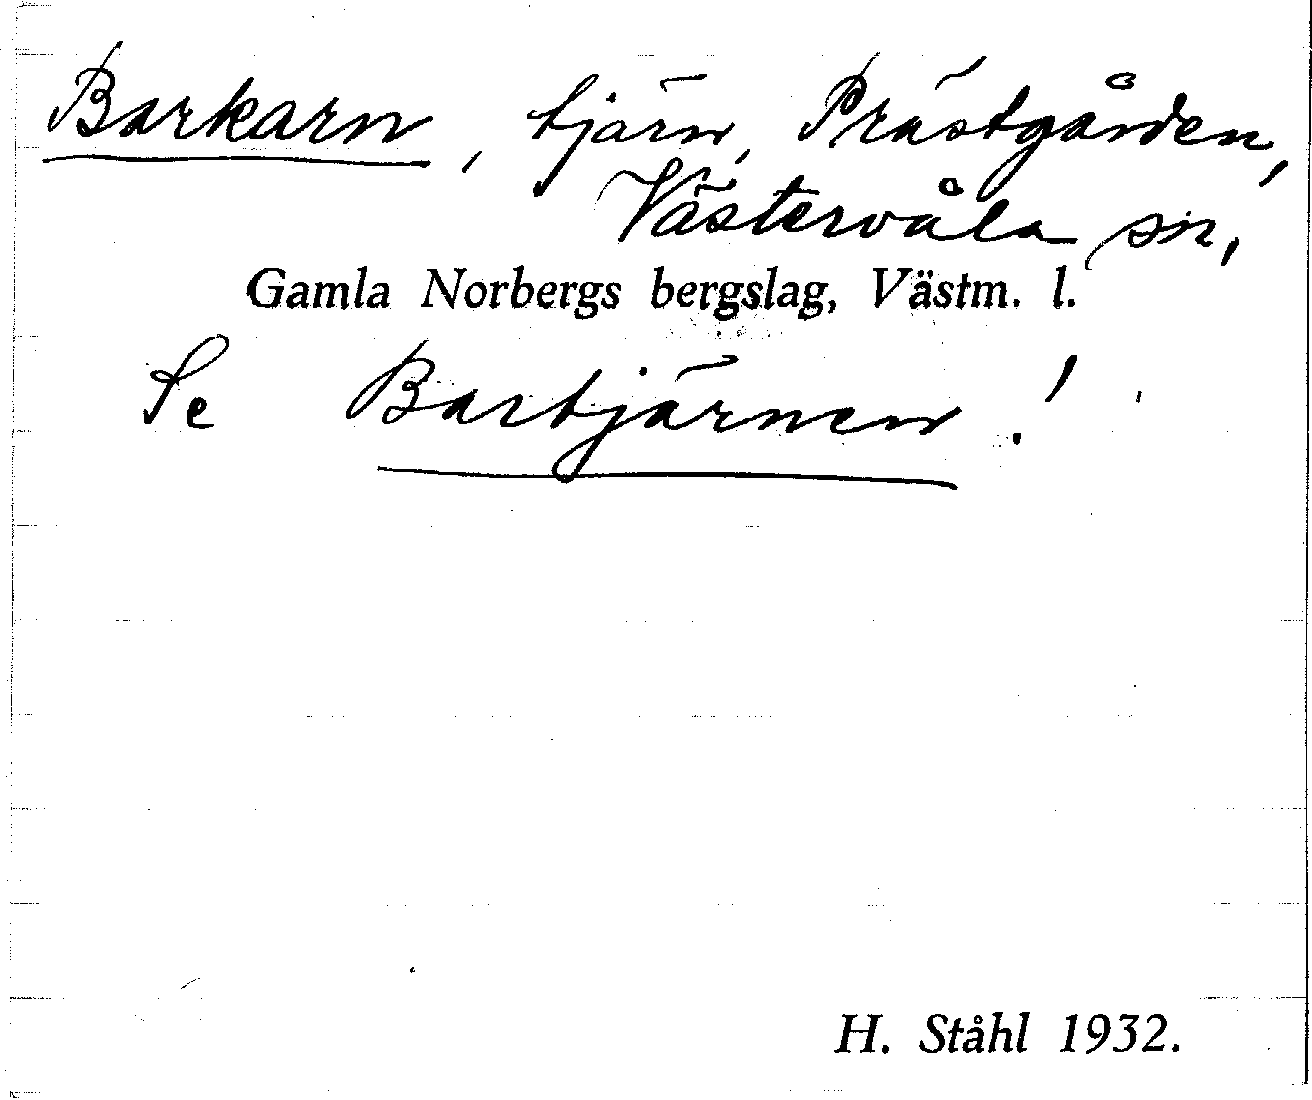 Barkarn, tjärn, Prästgården,
Västervåla sn,
Gamla Norbergs bergslag, Västm. l.
Se Bartjärnen!
H. Ståhl 1932.